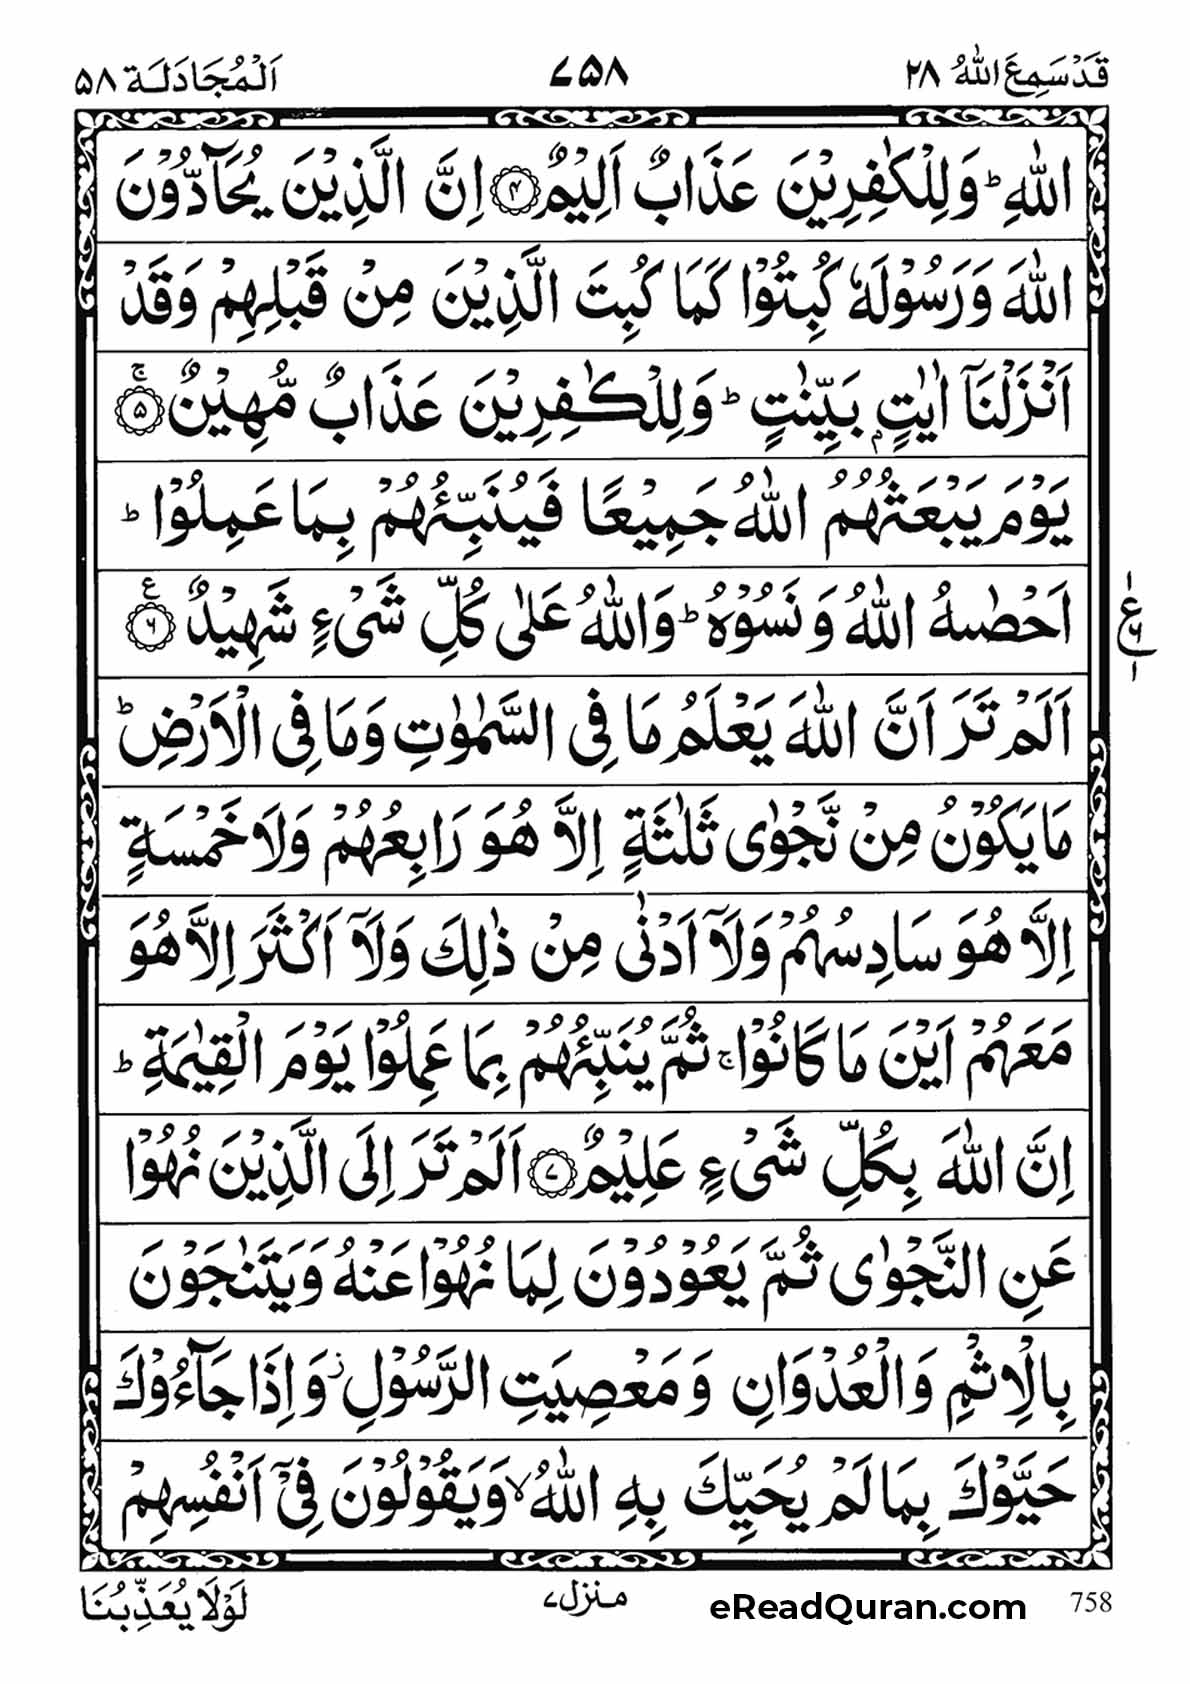 قَدۡسَمِعَ اللّٰهُ ۲۸
۷۵۸
اَلۡمُجَادَلَة ۵۸
اللّٰهِ ؕ وَلِلۡكٰفِرِيۡنَ عَذَابٌ اَلِيۡمٌ ۴ اِنَّ الَّذِيۡنَ يُحَآدُّوۡنَ
اللّٰهَ وَرَسُوۡلَهٗ كُبِتُوۡا كَمَا كُبِتَ الَّذِيۡنَ مِنۡ قَبۡلِهِمۡ وَقَدۡ
اَنۡزَلۡنَاۤ اٰيٰتٍۭ بَيِّنٰتٍ ؕ وَلِلۡكٰفِرِيۡنَ عَذَابٌ مُّهِيۡنٌ ۚ ۵
يَوۡمَ يَبۡعَثُهُمُ اللّٰهُ جَمِيۡعًا فَيُنَبِّئُهُمۡ بِمَا عَمِلُوۡا ؕ
اَحۡصٰٮهُ اللّٰهُ وَنَسُوۡهُ ؕ وَاللّٰهُ عَلٰى كُلِّ شَىۡءٍ شَهِيۡدٌ ۶ ع
۱ ع ۶ ۱
اَلَمۡ تَرَ اَنَّ اللّٰهَ يَعۡلَمُ مَا فِى السَّمٰوٰتِ وَمَا فِى الۡاَرۡضِ ؕ
مَا يَكُوۡنُ مِنۡ نَّجۡوٰى ثَلٰثَةٍ اِلَّا هُوَ رَابِعُهُمۡ وَلَا خَمۡسَةٍ
اِلَّا هُوَ سَادِسُهُمۡ وَلَاۤ اَدۡنٰى مِنۡ ذٰلِكَ وَلَاۤ اَكۡثَرَ اِلَّا هُوَ
مَعَهُمۡ اَيۡنَ مَا كَانُوۡا ۚ ثُمَّ يُنَبِّئُهُمۡ بِمَا عَمِلُوۡا يَوۡمَ الۡقِيٰمَةِ ؕ
اِنَّ اللّٰهَ بِكُلِّ شَىۡءٍ عَلِيۡمٌ ۷ اَلَمۡ تَرَ اِلَى الَّذِيۡنَ نُهُوۡا
عَنِ النَّجۡوٰى ثُمَّ يَعُوۡدُوۡنَ لِمَا نُهُوۡا عَنۡهُ وَيَتَنٰجَوۡنَ
بِالۡاِثۡمِ وَالۡعُدۡوَانِ وَمَعۡصِيَتِ الرَّسُوۡلِ ز وَاِذَا جَآءُوۡكَ
حَيَّوۡكَ بِمَا لَمۡ يُحَيِّكَ بِهِ اللّٰهُ ۙ وَيَقُوۡلُوۡنَ فِىۡۤ اَنۡفُسِهِمۡ
لَوۡلَا يُعَذِّبُنَا
منزل ۷
eReadQuran.com
758